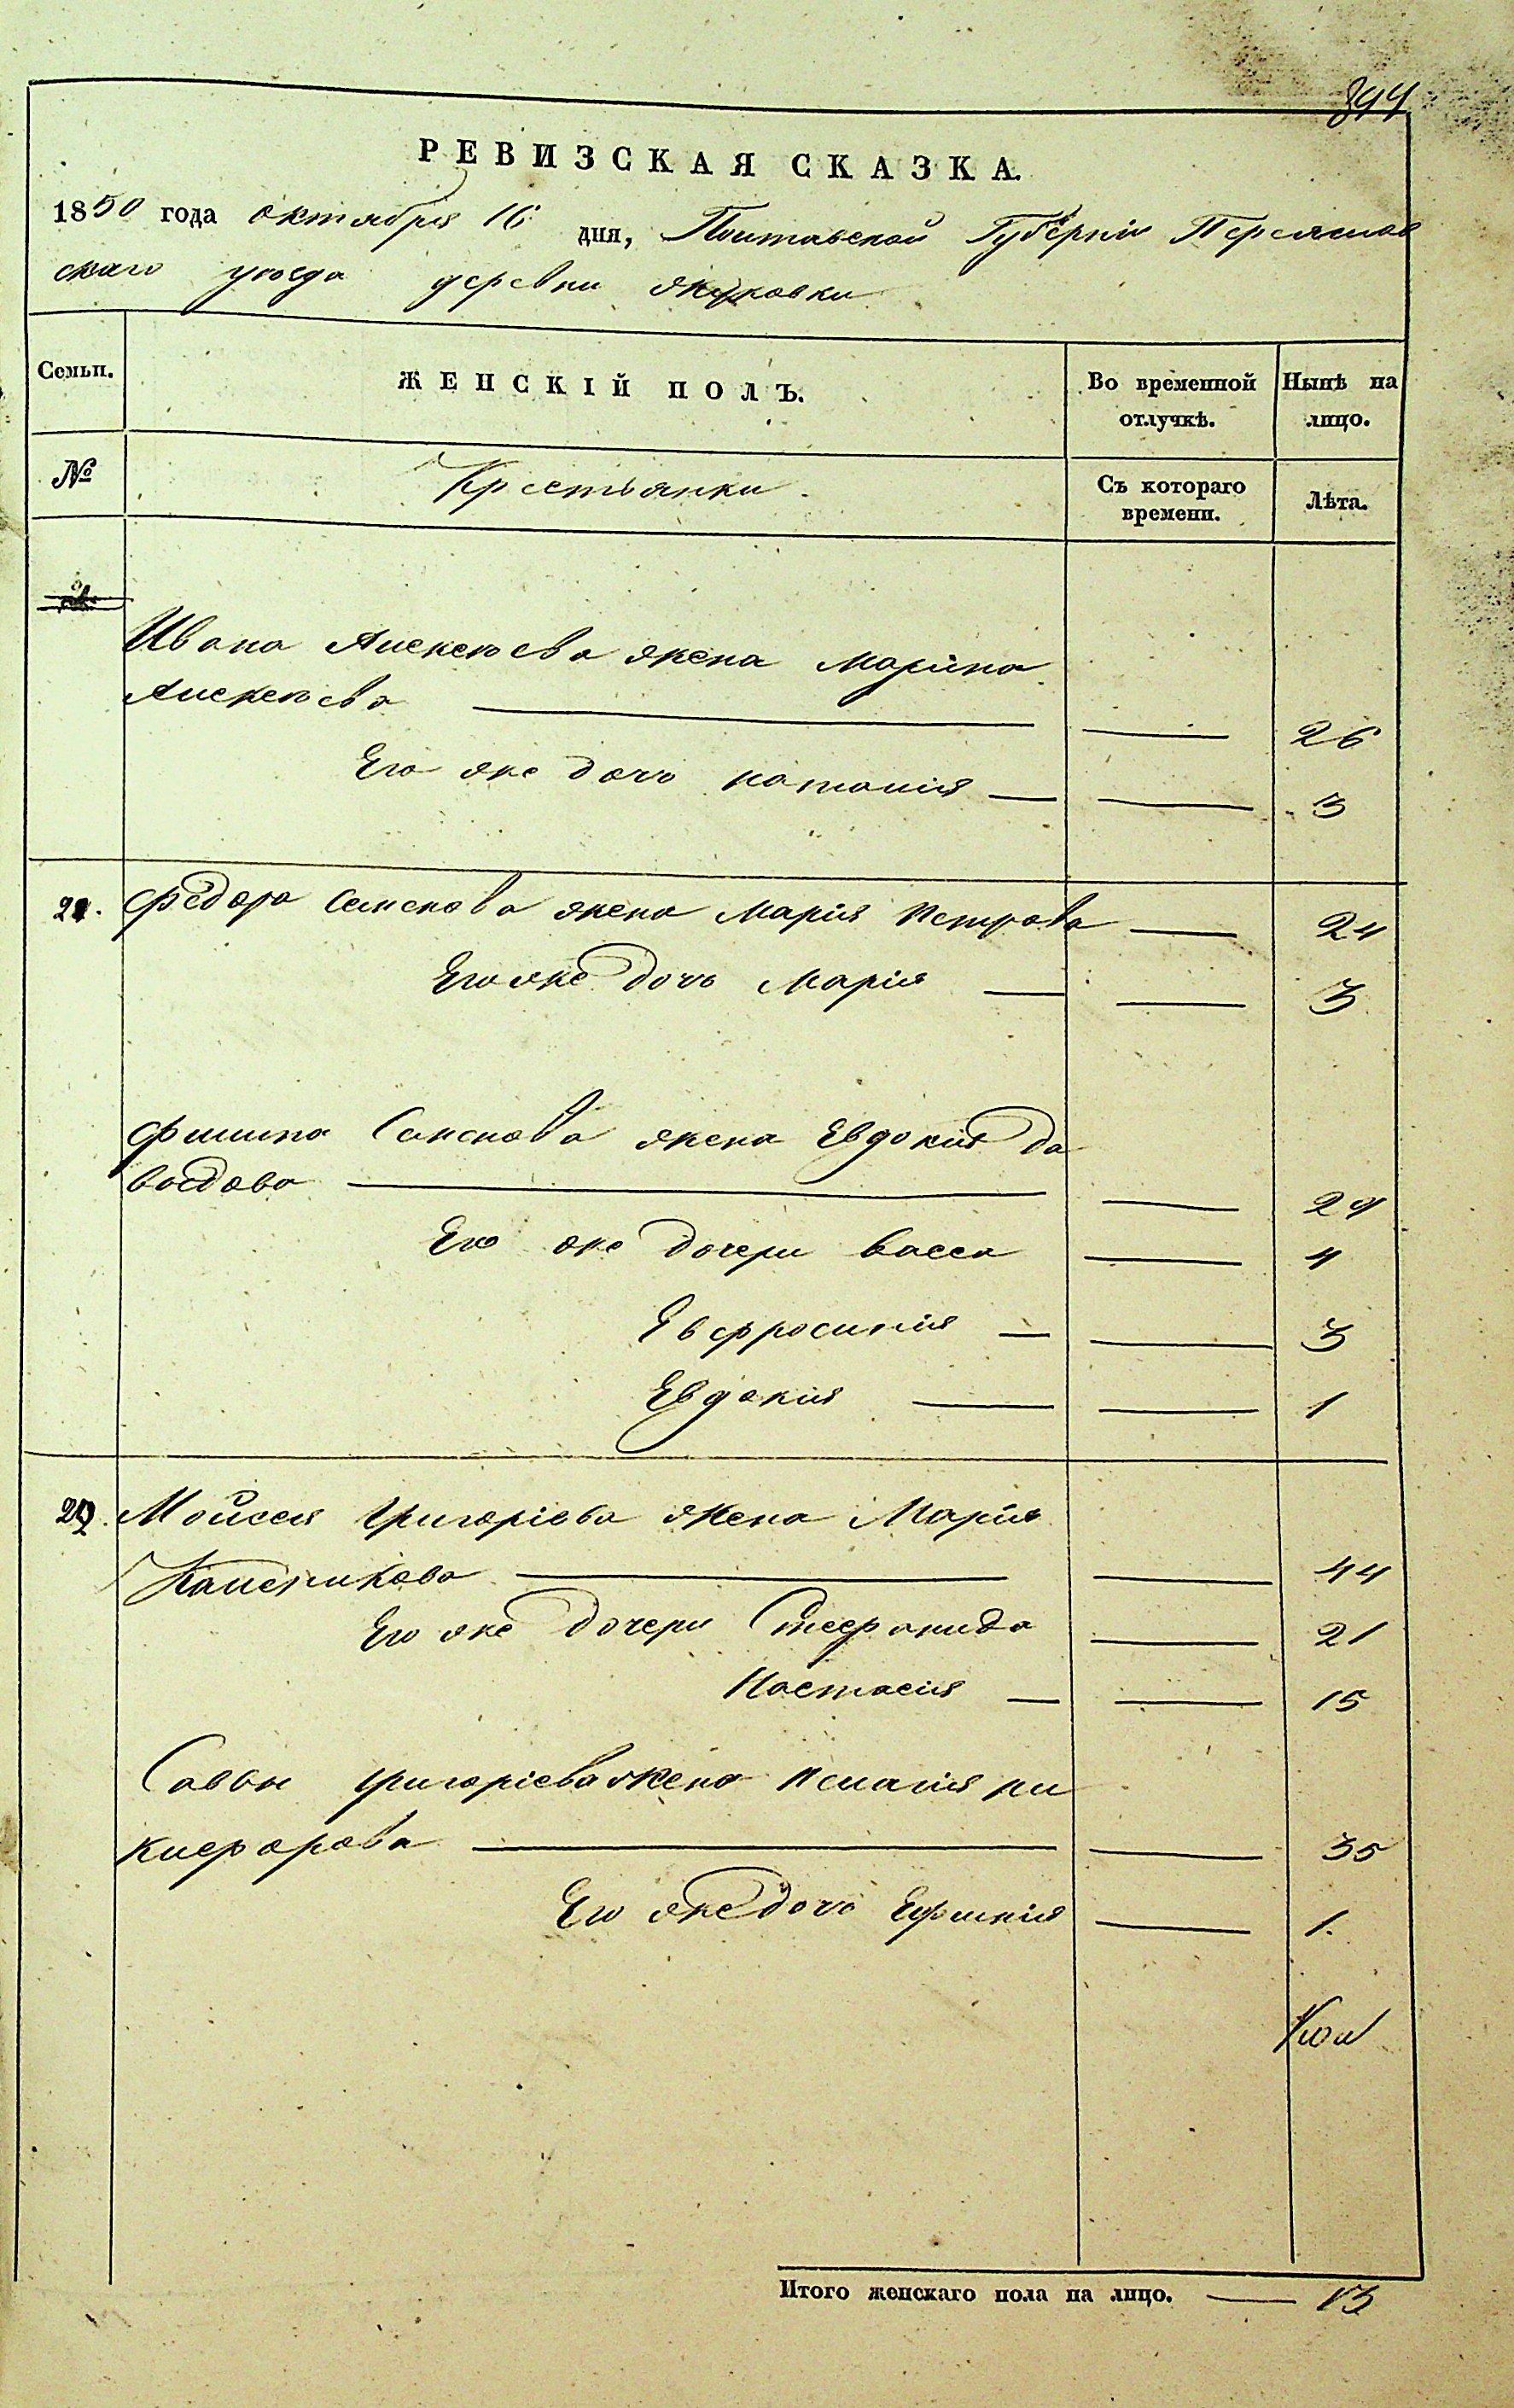 РЕВИЗСКАЯ СКАЗКА.
1850 года октября 16 дня, Полтавской Губерніи Переяслав
скаго уезда деревни
Семьи.
ЖЕНСКІЙ ПОЛЪ.
Во временной отлучкѣ.
Нынѣ на лицо.
№
Крестьянки.
Съ котораго времени.
Лѣта.
Ивана Алексѣева жена Марина
Алексѣева — — 26
Его же дочь наталія — — 3
Федора Семенова жена Марія Петрова — 24
Его же дочь Марія — — 3
Филипа Семенова жена Евдокия Да
видова — — 29
Его же дочери васса — 4
Евфросинія — — 3
Евдокия — — 1
Мойсея Григоріева жена Марія
— — 44
Его же дочери Стефанида — 21
Настасия — — 15
Савы григоріева жена Пелагия ни
кифорова — — 35
Его же дочь Ефимия — 1.
Итого женскаго пола на лицо. — 13